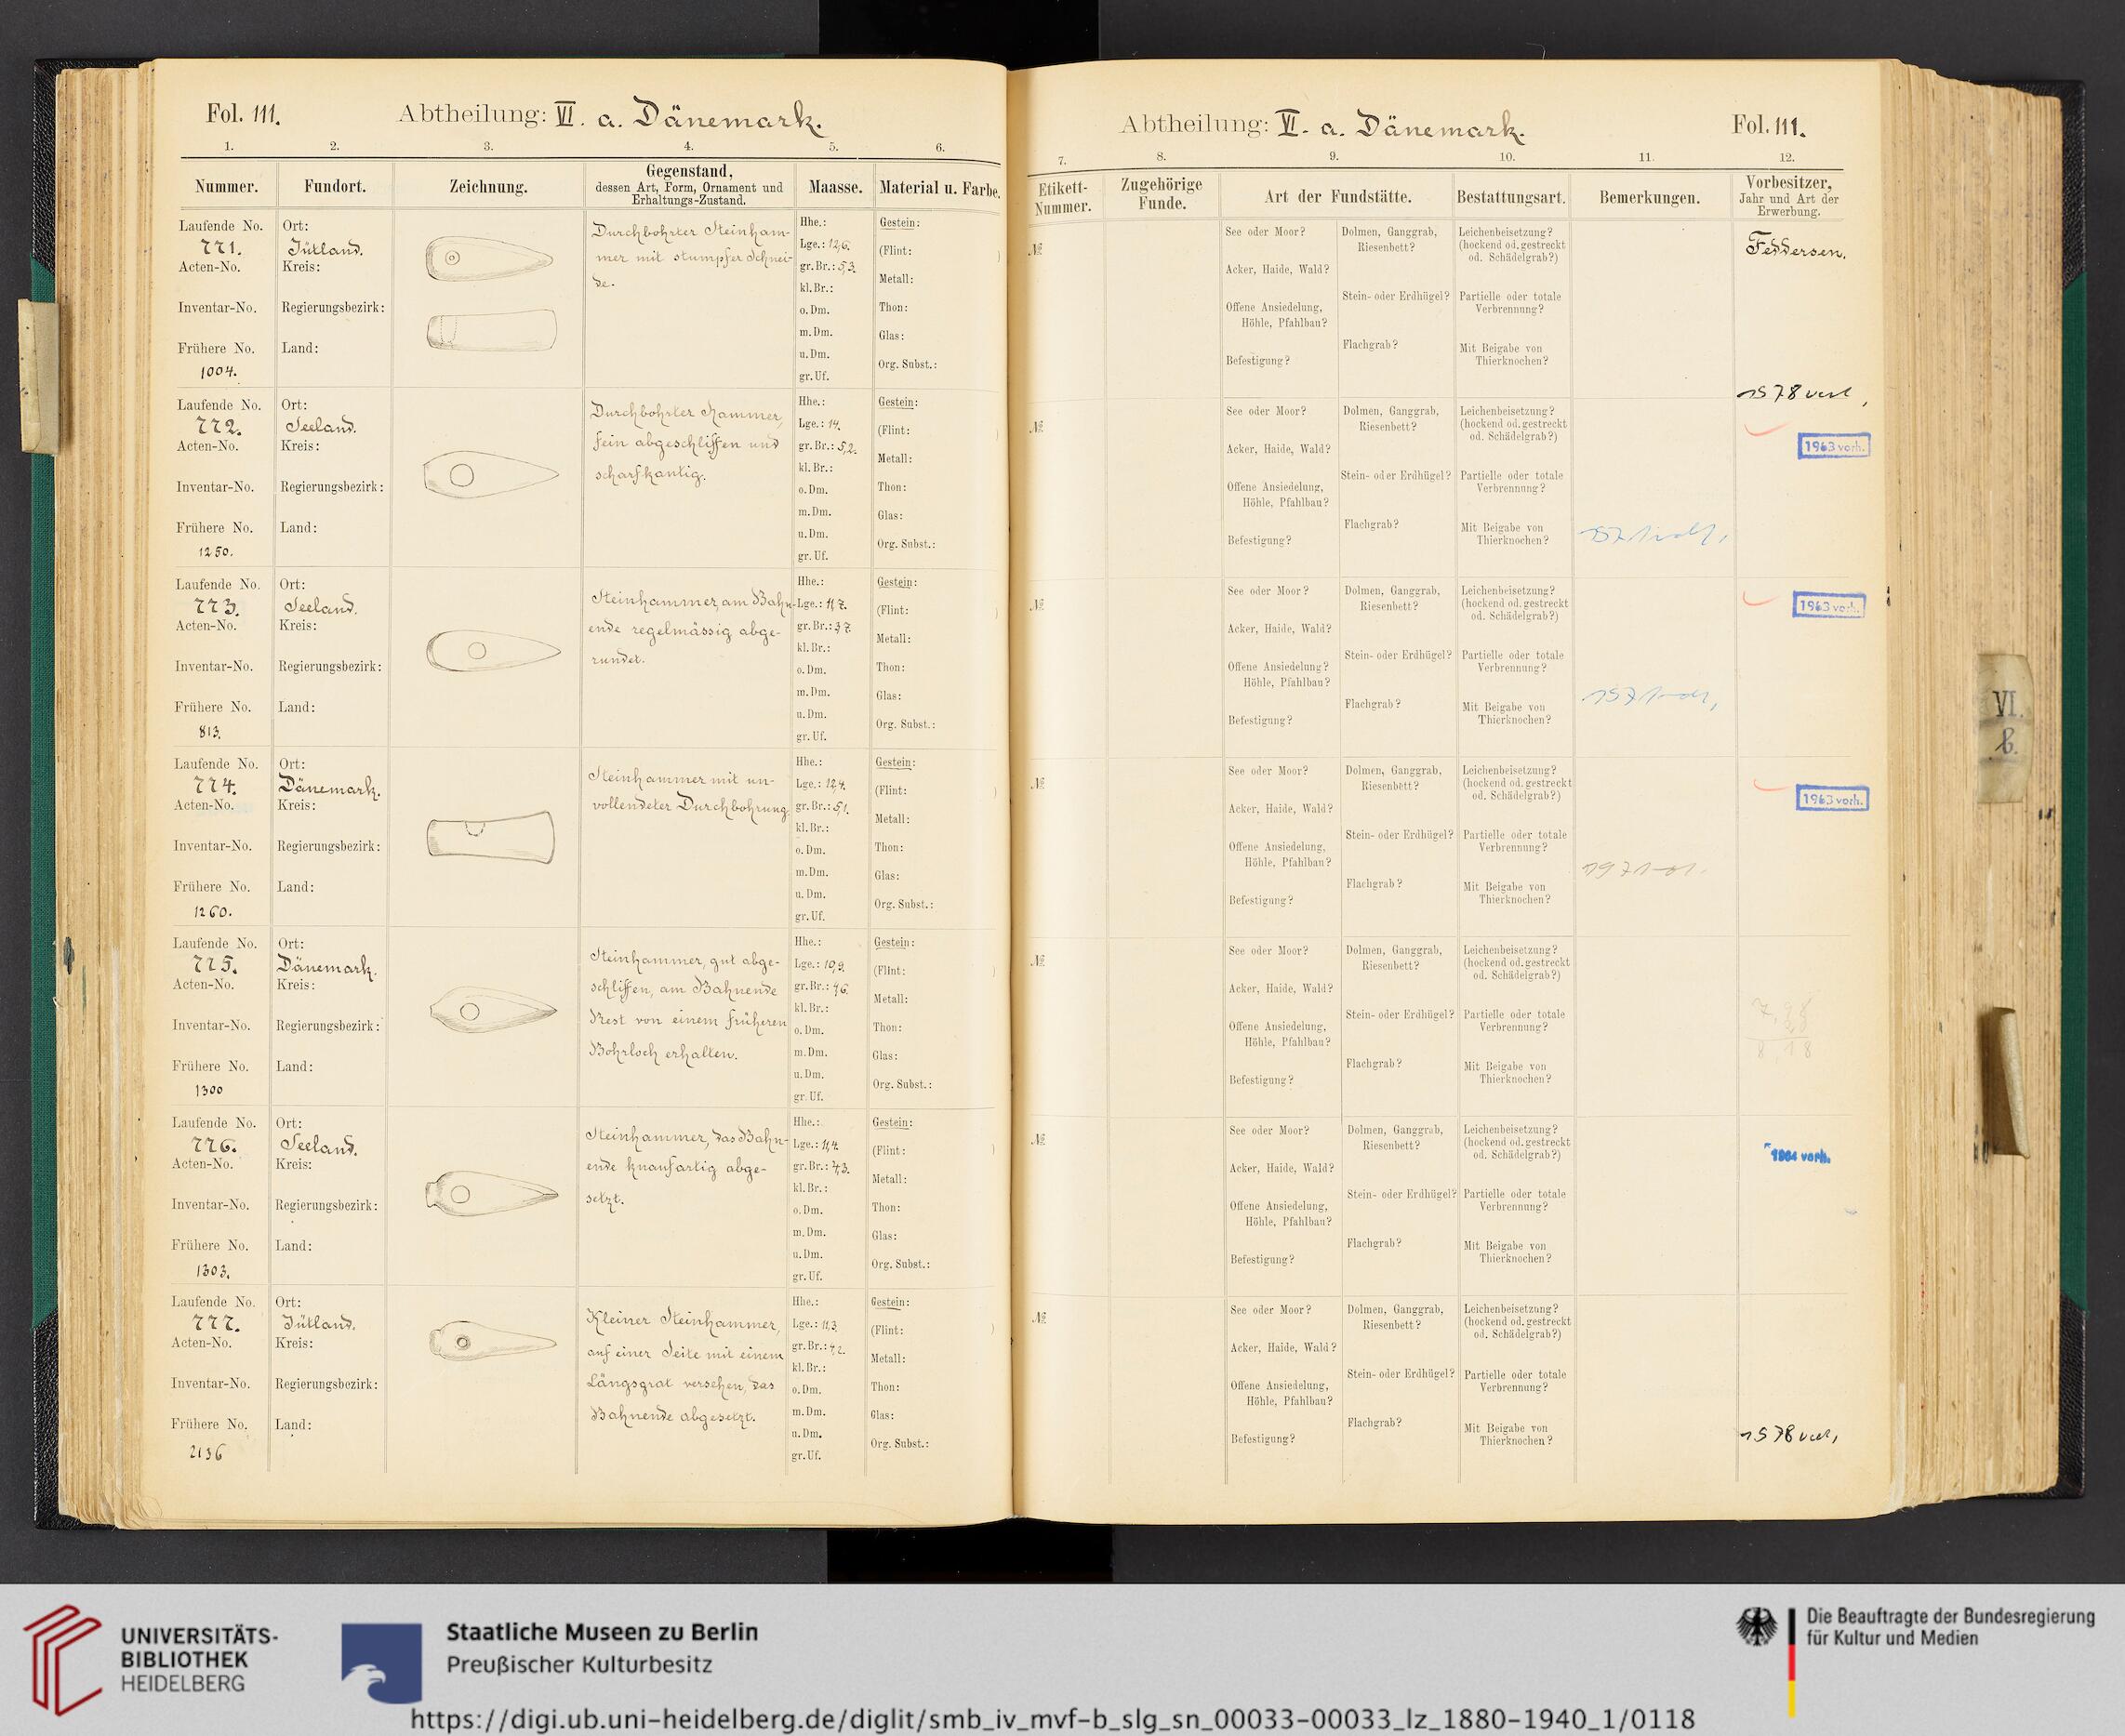 Fol. 111.
Abtheilung: VI. a. Dänemark.
1. 2. 3. 4. 5. 6.
Nummer. Fundort. Zeichnung. Gegenstand, dessen Art, Form, Ornament und Erhaltungs-Zustand. Maasse. Material u. Farbe.
Laufende No. 771.
Acten-No.
Inventar-No.
Frühere No. 1004.
Ort: Jütland.
Kreis:
Regierungsbezirk:
Land:
Durchbohrter Steinham-
mer mit stumpfer Schnei-
de.
Hhe.:
Lge.: 12,6.
gr. Br.: 5,3.
kl. Br.:
o. Dm.
m. Dm.
u. Dm.
gr. Uf.
Gestein:
(Flint: )
Metall:
Thon:
Glas:
Org. Subst.:
Laufende No. 772.
Acten-No.
Inventar-No.
Frühere No. 1250.
Ort: Seeland.
Kreis:
Regierungsbezirk:
Land:
Durchbohrter Hammer,
fein abgeschliffen und
scharfkantig.
Hhe.:
Lge.: 14.
gr. Br.: 5,2.
kl. Br.:
o. Dm.
m. Dm.
u. Dm.
gr. Uf.
Gestein:
(Flint: )
Metall:
Thon:
Glas:
Org. Subst.:
Laufende No. 773.
Acten-No.
Inventar-No.
Frühere No. 813.
Ort: Seeland.
Kreis:
Regierungsbezirk:
Land:
Steinhammer, am Bahn-
ende regelmässig abge-
rundet.
Hhe.:
Lge.: 11,7.
gr. Br.: 3,7.
kl. Br.:
o. Dm.
m. Dm.
u. Dm.
gr. Uf.
Gestein:
(Flint: )
Metall:
Thon:
Glas:
Org. Subst.:
Laufende No. 774.
Acten-No.
Inventar-No.
Frühere No. 1260.
Ort: Dänemark.
Kreis:
Regierungsbezirk:
Land:
Steinhammer mit un-
vollendeter Durchbohrung.
Hhe.:
Lge.: 12,4.
gr. Br.: 5,1.
kl. Br.:
o. Dm.
m. Dm.
u. Dm.
gr. Uf.
Gestein:
(Flint: )
Metall:
Thon:
Glas:
Org. Subst.:
Laufende No. 775.
Acten-No.
Inventar-No.
Frühere No. 1300
Ort: Dänemark.
Kreis:
Regierungsbezirk:
Land:
Steinhammer, gut abge-
schliffen, am Bahnende
Rest von einem früheren
Bohrloch erhalten.
Hhe.:
Lge.: 10,9.
gr. Br.: 4,6.
kl. Br.:
o. Dm.
m. Dm.
u. Dm.
gr. Uf.
Gestein:
(Flint: )
Metall:
Thon:
Glas:
Org. Subst.:
Laufende No. 776.
Acten-No.
Inventar-No.
Frühere No. 1303.
Ort: Seeland.
Kreis:
Regierungsbezirk:
Land:
Steinhammer, das Bahn-
ende knaufartig abge-
setzt.
Hhe.:
Lge.: 11,4.
gr. Br.: 4,3.
kl. Br.:
o. Dm.
m. Dm.
u. Dm.
gr. Uf.
Gestein:
(Flint: )
Metall:
Thon:
Glas:
Org. Subst.:
Laufende No. 777.
Acten-No.
Inventar-No.
Frühere No. 2136
Ort: Jütland.
Kreis:
Regierungsbezirk:
Land:
Kleiner Steinhammer,
auf einer Seite mit einem
Längsgrat versehen, das
Bahnende abgesetzt.
Hhe.:
Lge.: 11,3.
gr. Br.: 4,2.
kl. Br.:
o. Dm.
m. Dm.
u. Dm.
gr. Uf.
Gestein:
(Flint: )
Metall:
Thon:
Glas:
Org. Subst.:
Abtheilung: VI. a. Dänemark.
Fol. 111.
7. 8. 9. 10. 11. 12.
Etikett-Nummer. Zugehörige Funde. Art der Fundstätte. Bestattungsart. Bemerkungen. Vorbesitzer, Jahr und Art der Erwerbung.
№
See oder Moor?
Acker, Haide, Wald?
Offene Ansiedelung,
Höhle, Pfahlbau?
Befestigung?
Dolmen, Ganggrab,
Riesenbett?
Stein- oder Erdhügel?
Flachgrab?
Leichenbeisetzung?
(hockend od. gestreckt
od. Schädelgrab?)
Partielle oder totale
Verbrennung?
Mit Beigabe von
Thierknochen?
Feddersen.
№
See oder Moor?
Acker, Haide, Wald?
Offene Ansiedelung,
Höhle, Pfahlbau?
Befestigung?
Dolmen, Ganggrab,
Riesenbett?
Stein- oder Erdhügel?
Flachgrab?
Leichenbeisetzung?
(hockend od. gestreckt
od. Schädelgrab?)
Partielle oder totale
Verbrennung?
Mit Beigabe von
Thierknochen?
1963 vorh.
№
See oder Moor?
Acker, Haide, Wald?
Offene Ansiedelung?
Höhle, Pfahlbau?
Befestigung?
Dolmen, Ganggrab,
Riesenbett?
Stein- oder Erdhügel?
Flachgrab?
Leichenbeisetzung?
(hockend od. gestreckt
od. Schädelgrab?)
Partielle oder totale
Verbrennung?
Mit Beigabe von
Thierknochen?
1963 vorh.
№
See oder Moor?
Acker, Haide, Wald?
Offene Ansiedelung,
Höhle, Pfahlbau?
Befestigung?
Dolmen, Ganggrab,
Riesenbett?
Stein- oder Erdhügel?
Flachgrab?
Leichenbeisetzung?
(hockend od. gestreckt
od. Schädelgrab?)
Partielle oder totale
Verbrennung?
Mit Beigabe von
Thierknochen?
1963 vorh.
№
See oder Moor?
Acker, Haide, Wald?
Offene Ansiedelung,
Höhle, Pfahlbau?
Befestigung?
Dolmen, Ganggrab,
Riesenbett?
Stein- oder Erdhügel?
Flachgrab?
Leichenbeisetzung?
(hockend od. gestreckt
od. Schädelgrab?)
Partielle oder totale
Verbrennung?
Mit Beigabe von
Thierknochen?
№
See oder Moor?
Acker, Haide, Wald?
Offene Ansiedelung,
Höhle, Pfahlbau?
Befestigung?
Dolmen, Ganggrab,
Riesenbett?
Stein- oder Erdhügel?
Flachgrab?
Leichenbeisetzung?
(hockend od. gestreckt
od. Schädelgrab?)
Partielle oder totale
Verbrennung?
Mit Beigabe von
Thierknochen?
vorh.
№
See oder Moor?
Acker, Haide, Wald?
Offene Ansiedelung,
Höhle, Pfahlbau?
Befestigung?
Dolmen, Ganggrab,
Riesenbett?
Stein- oder Erdhügel?
Flachgrab?
Leichenbeisetzung?
(hockend od. gestreckt
od. Schädelgrab?)
Partielle oder totale
Verbrennung?
Mit Beigabe von
Thierknochen?
VI.
b.
UNIVERSITÄTS-
BIBLIOTHEK
HEIDELBERG
Staatliche Museen zu Berlin
Preußischer Kulturbesitz
Die Beauftragte der Bundesregierung
für Kultur und Medien
https://digi.ub.uni-heidelberg.de/diglit/smb_iv_mvf-b_slg_sn_00033-00033_lz_1880-1940_1/0118